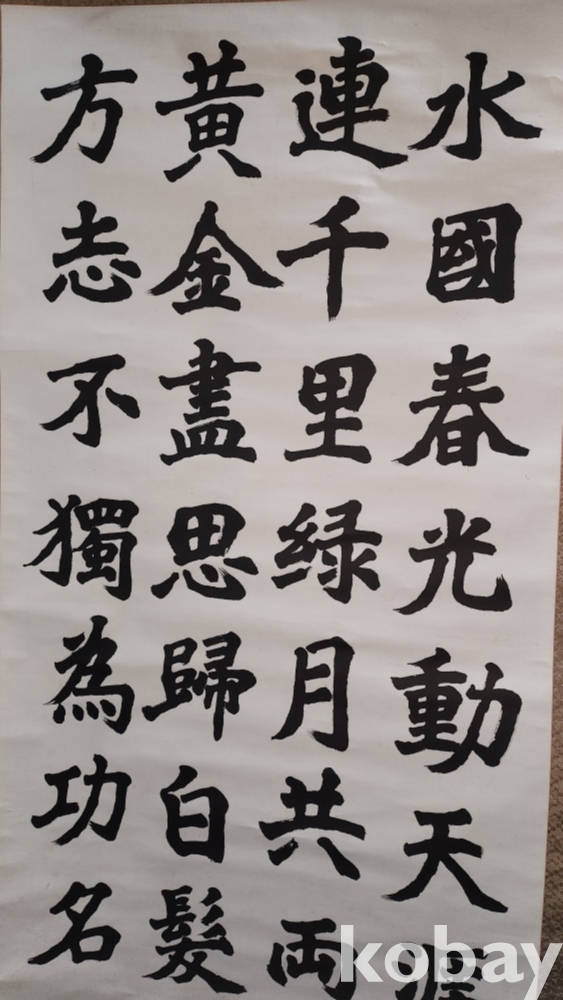 水國春光動天
連千里緑月共両
黄金盡思歸白髮
方志不獨為功名
kobay